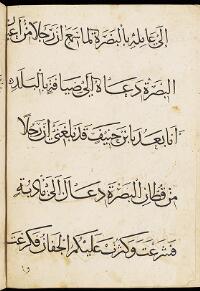 الى عامله بالبصرة لما انهى ان رجلا من
البصرة دعاه الى ضيافة بالبلدة
اما بعد يا بن حنيف قد بلغنى ان رجلا
من قطان البصرة دعاك الى مادبة
فسرعت وكرت عليكم الجفان فكرعت